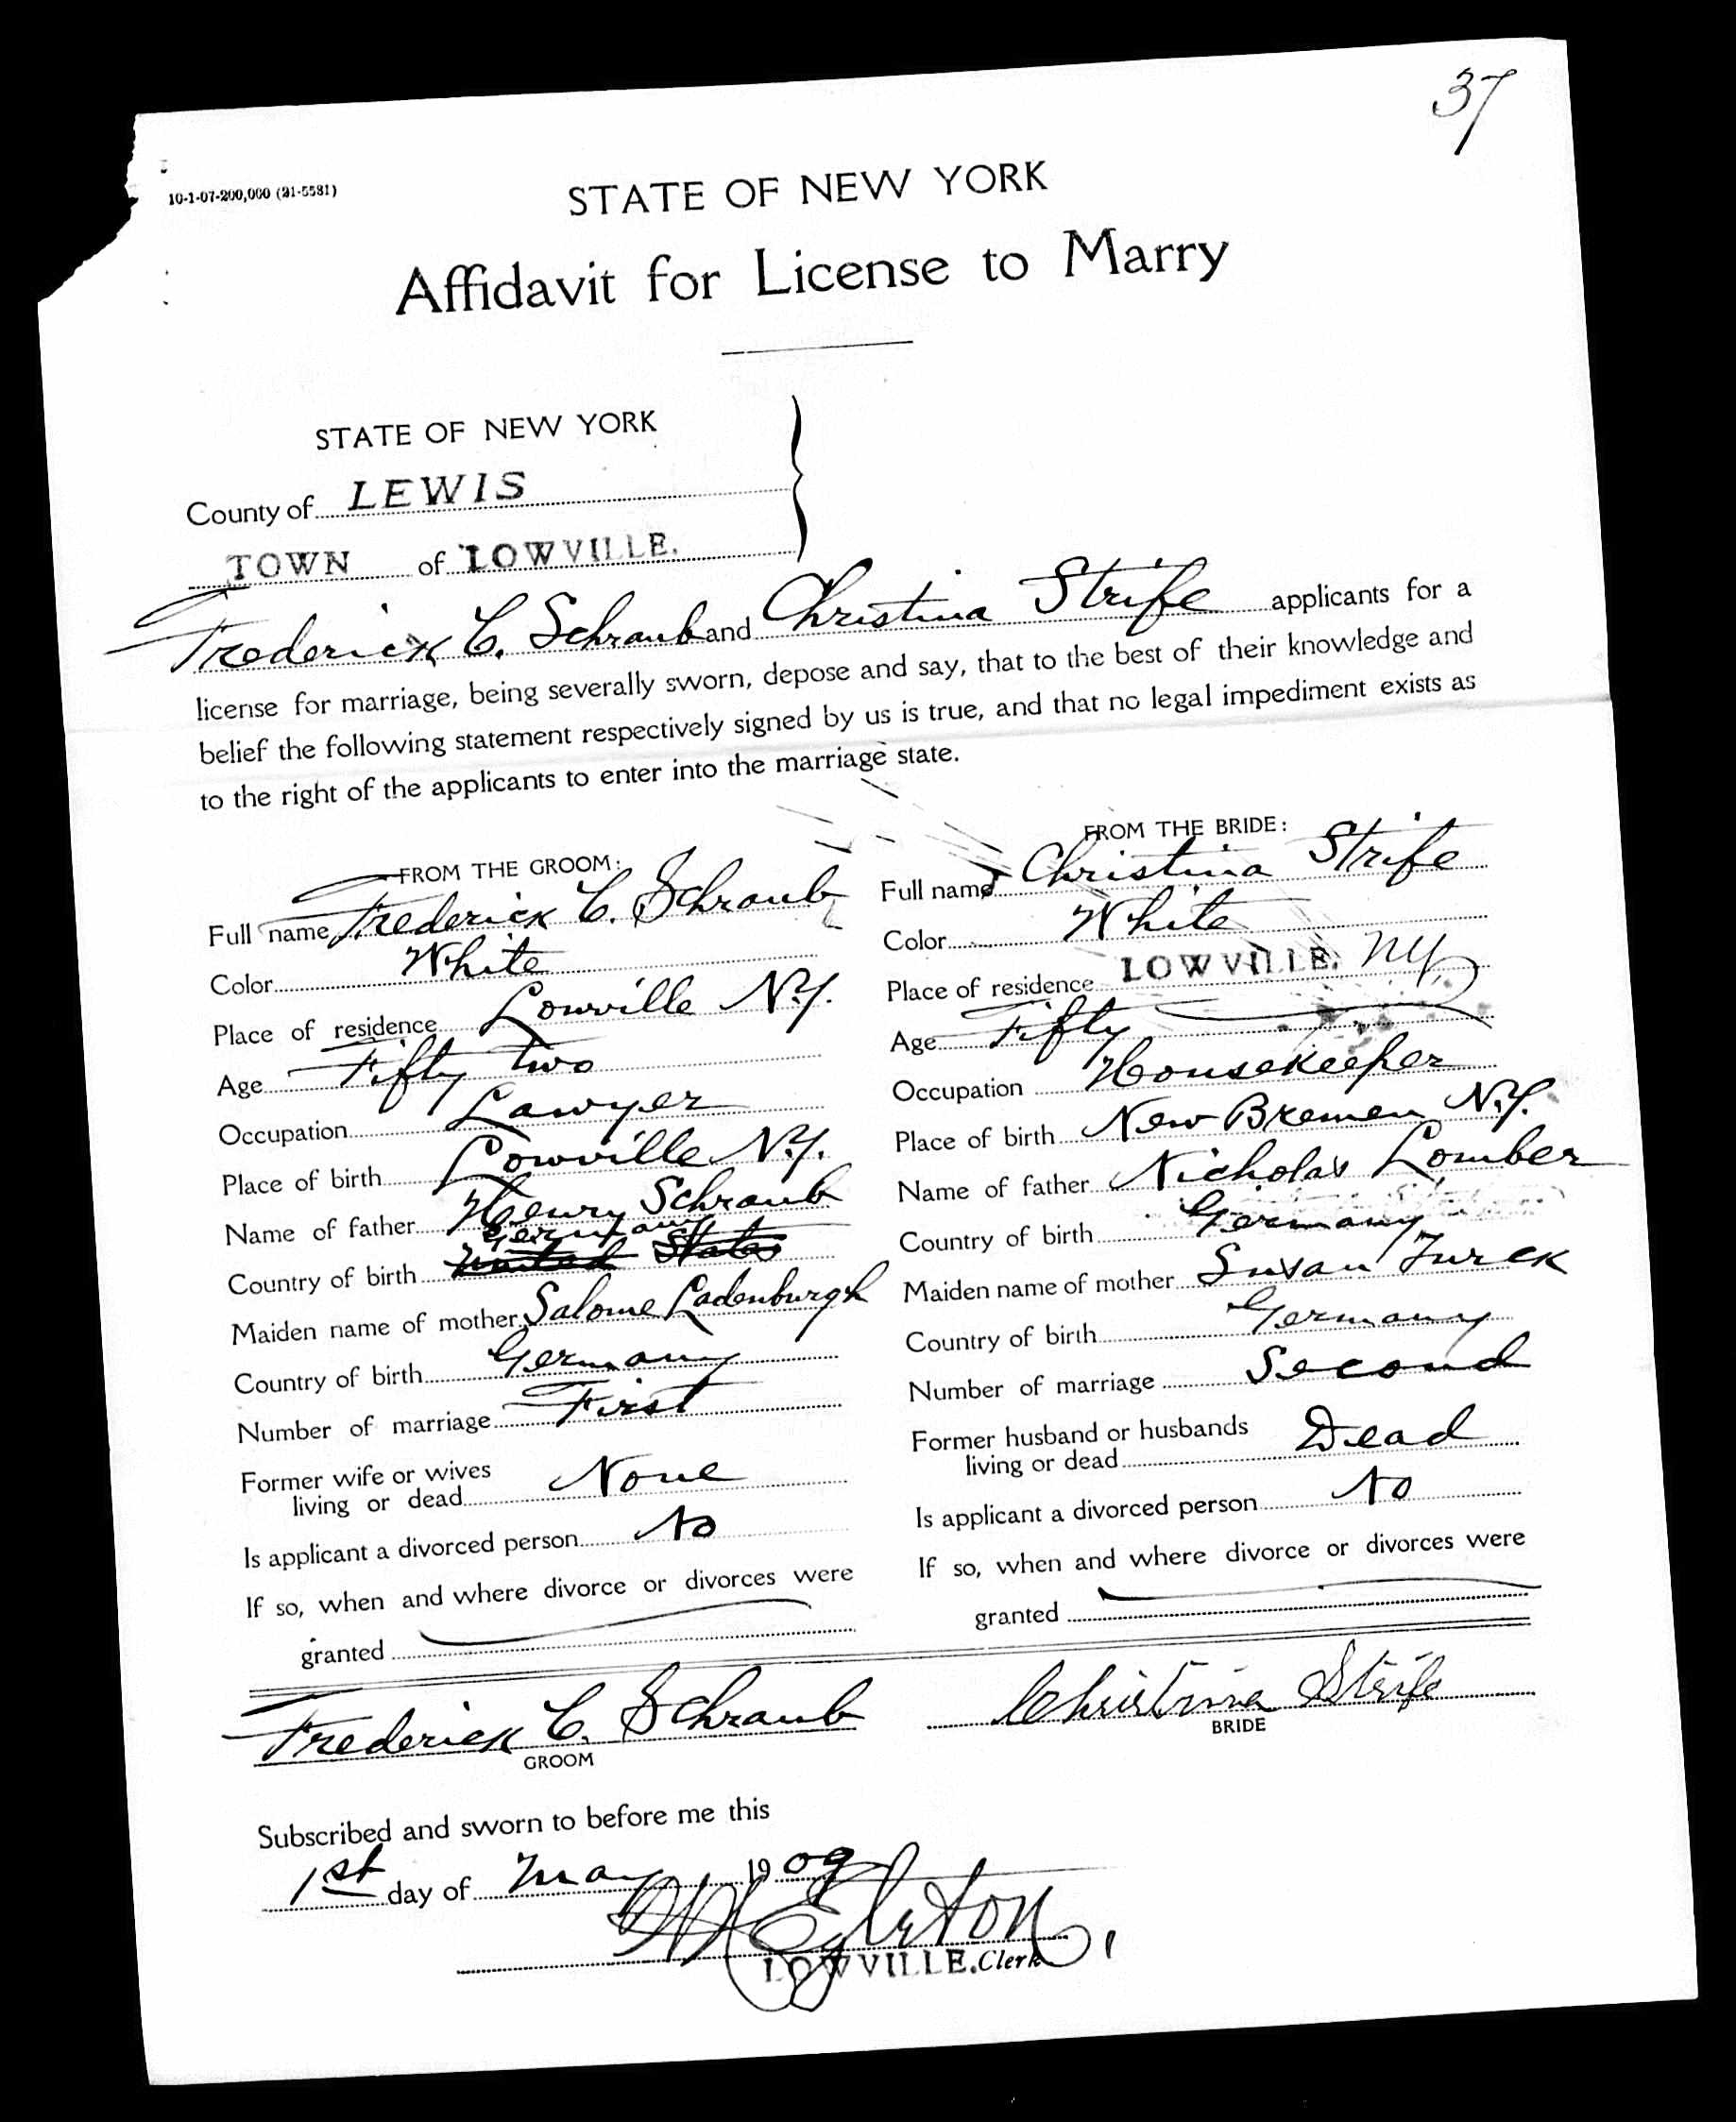 37
10-1-07-200,000 (21-5581)
STATE OF NEW YORK
Affidavit for License to Marry
STATE OF NEW YORK
County of LEWIS
TOWN of LOWVILLE.
Frederick C. Schraub and Christina Strife applicants for a
license for marriage, being severally sworn, depose and say, that to the best of their knowledge and
belief the following statement respectively signed by us is true, and that no legal impediment exists as
to the right of the applicants to enter into the marriage state.
FROM THE GROOM:
Full name Frederick C. Schraub
Color White
Place of residence Lowville N.Y.
Age Fifty two
Occupation Lawyer
Place of birth Lowville N.Y.
Name of father Henry Schraub
Germany
Country of birth United States
Maiden name of mother Salome Ladenburgh
Country of birth Germany
Number of marriage First
Former wife or wives
living or dead None
Is applicant a divorced person No
If so, when and where divorce or divorces were
granted
FROM THE BRIDE:
Full name Christina Strife
Color White
Place of residence LOWVILLE. NY,
Age Fifty
Occupation Housekeeper
Place of birth New Bremen N.Y.
Name of father Nicholas Lomber
Country of birth Germany
Maiden name of mother Susan Turck
Country of birth Germany
Number of marriage Second
Former husband or husbands
living or dead Dead
Is applicant a divorced person No
If so, when and where divorce or divorces were
granted
Frederick C. Schraub
GROOM
Christina Strife
BRIDE
Subscribed and sworn to before me this
1st day of May 1909
Egleton
LOWVILLE. Clerk